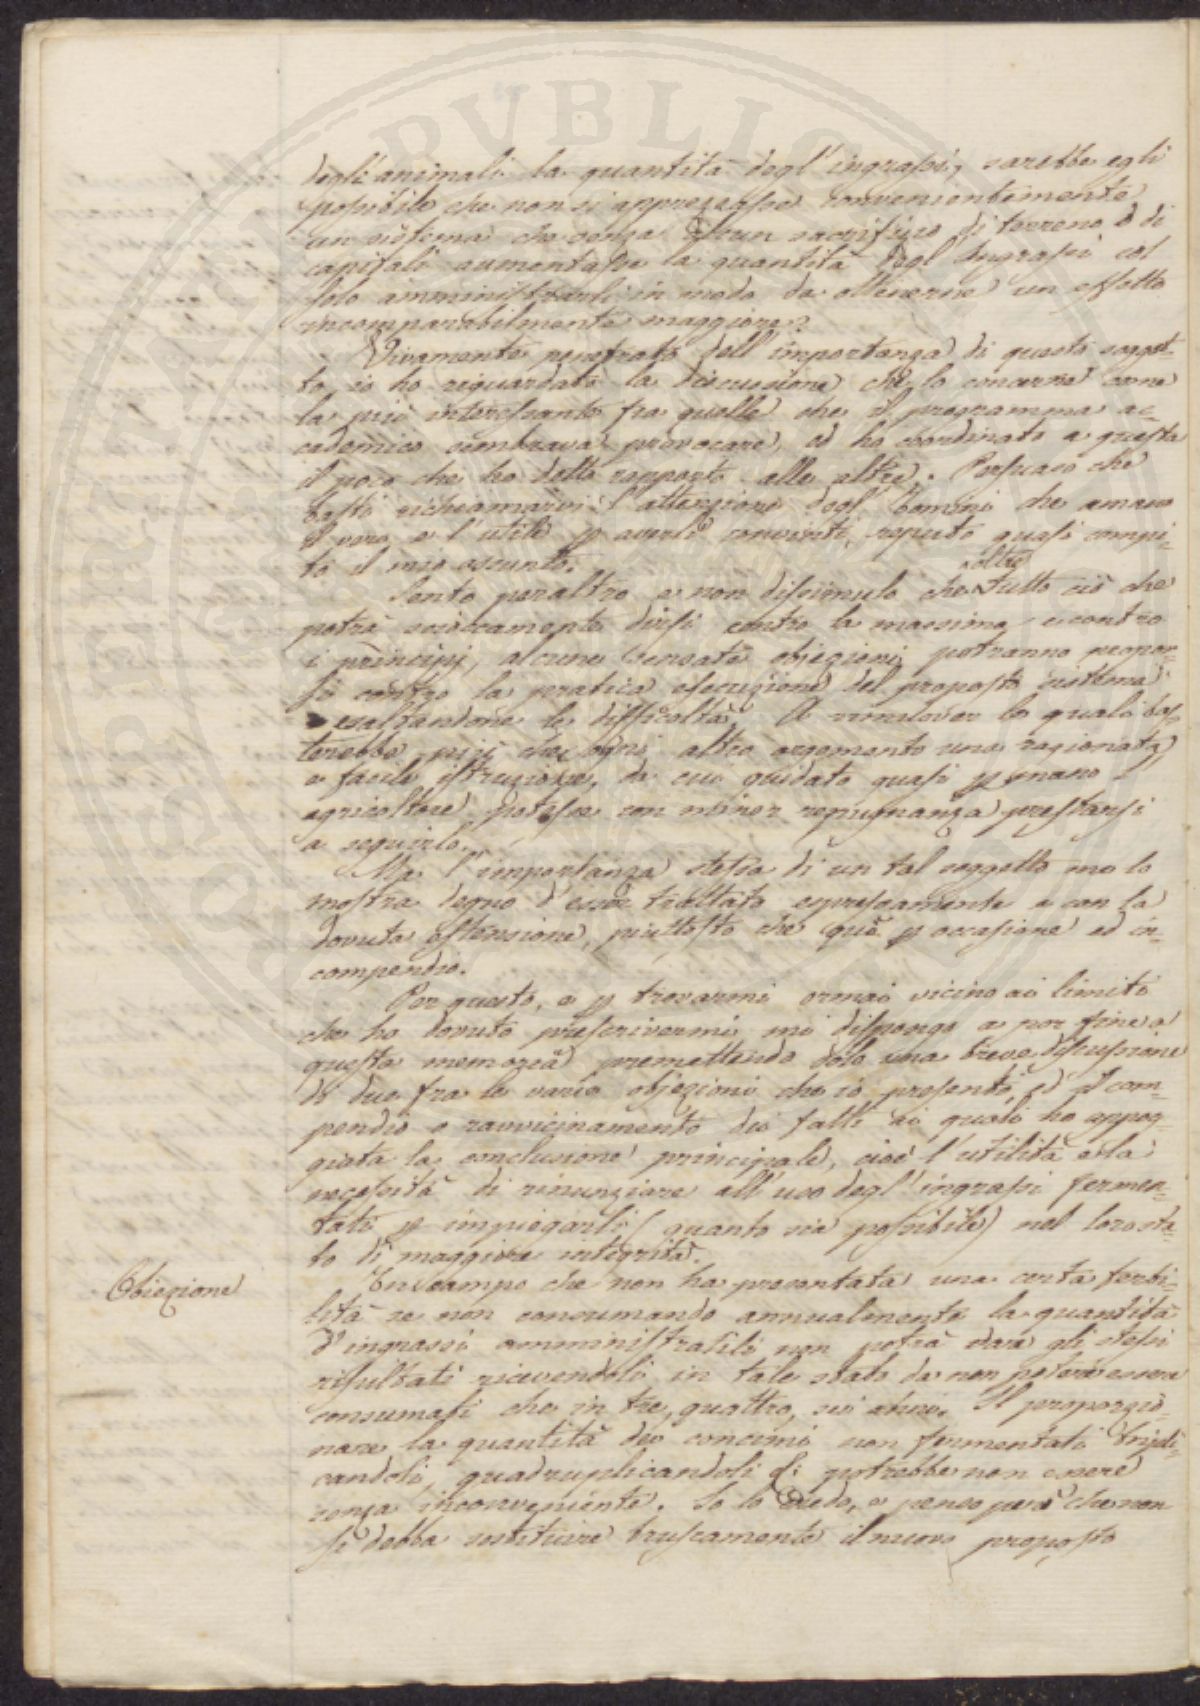 degli animali la quantità degl'ingrassi, sarebbe egli
possibile che non si apprezzasse convenientemente
un sistema che senza alcun sacrifizio di terreno o di
capitali aumentasse la quantità degl'Ingrassi col
solo amministrarli in modo da ottenerne un effetto
incomparabilmente maggiore?
Vivamente penetrato dell'importanza di questo sogget-
to, io ho riguardato la discussione che lo concerne come
la più interessante fra quelle che il programma ac-
cademico sembrava provocare, ed ho coordinato a questa
il poco che ho detto rapporto alle altre. Persuaso che
basti richiamarvi l'attenzione degl'Uomini che amano
il vero e l'utile p averli convinti, reputo quasi compi-
to il mio assunto.
oltre
Sento peraltro e non dissimulo che tutto ciò che
potrà scioccamente dirsi contro la massima e contro
i principj, alcune sensate objezioni potranno propor-
si contro la pratica esecuzione del proposto sistema
esaltandone le difficoltà. A rimuover le quali bas-
terebbe più che ogni altro argomento una ragionata,
e facile istruzione, da cui guidato quasi p mano l'
agricoltore potesse con minor repugnanza prestarsi
a seguirlo.
Ma l'importanza stessa di un tal soggetto me lo
mostra degno d'esser trattato espressamente e con la
dovuta estensione, piuttosto che quì p occasione ed in
compendio.
Per questo, e p trovarmi ormai vicino ai limiti
che ho dovuto prescrivermi mi dispongo a por fine a
questa memoria premettendo solo una breve discussione
di due fra le varie objezioni che io presento, ed il com-
pendio o ravvicinamento dei fatti ai quali ho appog-
giata la conclusione principale, cioè l'utilità e la
necessità di rinunziare all'uso degl'ingrassi fermen-
tati p impiegarli (quanto sia possibile) nel loro sta-
to di maggiore integrità.
Obiezione
Un campo che non ha presentata una certa ferti-
lità se non consumando annualmente la quantità
d'ingrassi amministratili non potrà dare gli stessi
risultati ricevendoli in tale stato da non potere essere
consumati che in tre, quattro, sei anni. Il proporzio-
nare la quantità dei concimi non fermentati tripli-
candoli, quadruplicandoli & potrebbe non essere
senza inconveniente. Io lo credo, e penso però che non
si debba sostituire bruscamente il nuovo proposto